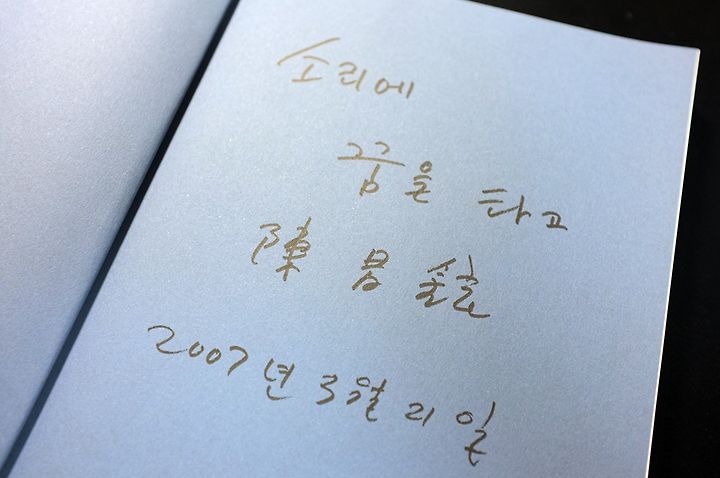 소리에
꿈을 타고
陳昌鉉
2007년 3월 21일